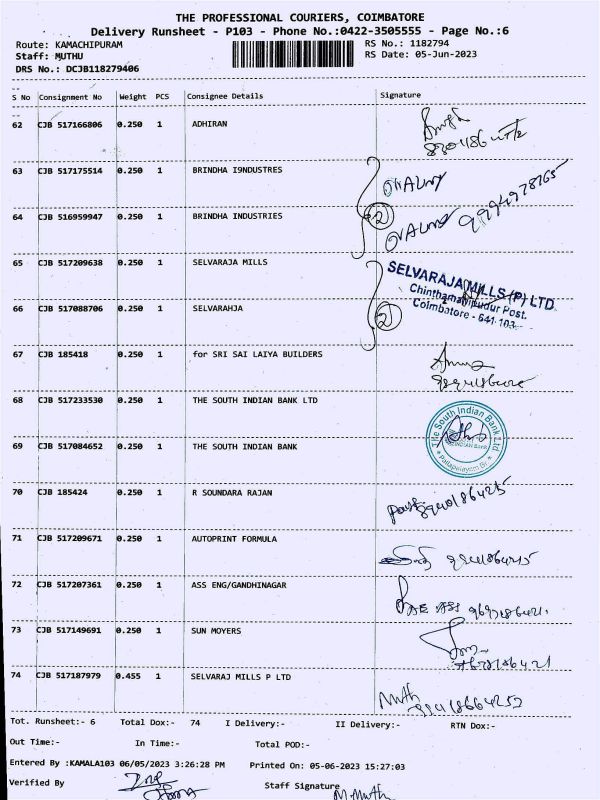 THE PROFESSIONAL COURIERS, COIMBATORE
Delivery Runsheet - P103 - Phone No.:0422-3505555 - Page No.:6
Route: KAMACHIPURAM RS No.: 1182794
Staff: MUTHU RS Date: 05-Jun-2023
DRS No.: DCJB118279406
S No Consignment No Weight PCS Consignee Details Signature
62 CJB 517166806 0.250 1 ADHIRAN
63 CJB 517175514 0.250 1 BRINDHA I9NDUSTRES
64 CJB 516959947 0.250 1 BRINDHA INDUSTRIES
2
65 CJB 517209638 0.250 1 SELVARAJA MILLS
SELVARAJA MILLS (P) LTD
Chinthamanipudur Post.
Coimbatore - 641 103.
66 CJB 517088706 0.250 1 SELVARAHJA
2
67 CJB 185418 0.250 1 for SRI SAI LAIYA BUILDERS
68 CJB 517233530 0.250 1 THE SOUTH INDIAN BANK LTD
The South Indian Bank Ltd.
69 CJB 517084652 0.250 1 THE SOUTH INDIAN BANK
70 CJB 185424 0.250 1 R SOUNDARA RAJAN
71 CJB 517209671 0.250 1 AUTOPRINT FORMULA
72 CJB 517207361 0.250 1 ASS ENG/GANDHINAGAR
73 CJB 517149691 0.250 1 SUN MOYERS
74 CJB 517187979 0.455 1 SELVARAJ MILLS P LTD
Muth
Tot. Runsheet:- 6 Total Dox:- 74 I Delivery:- II Delivery:- RTN Dox:-
Out Time:- In Time:- Total POD:-
Entered By :KAMALA103 06/05/2023 3:26:28 PM Printed On: 05-06-2023 15:27:03
Verified By Staff Signature
M. Muth